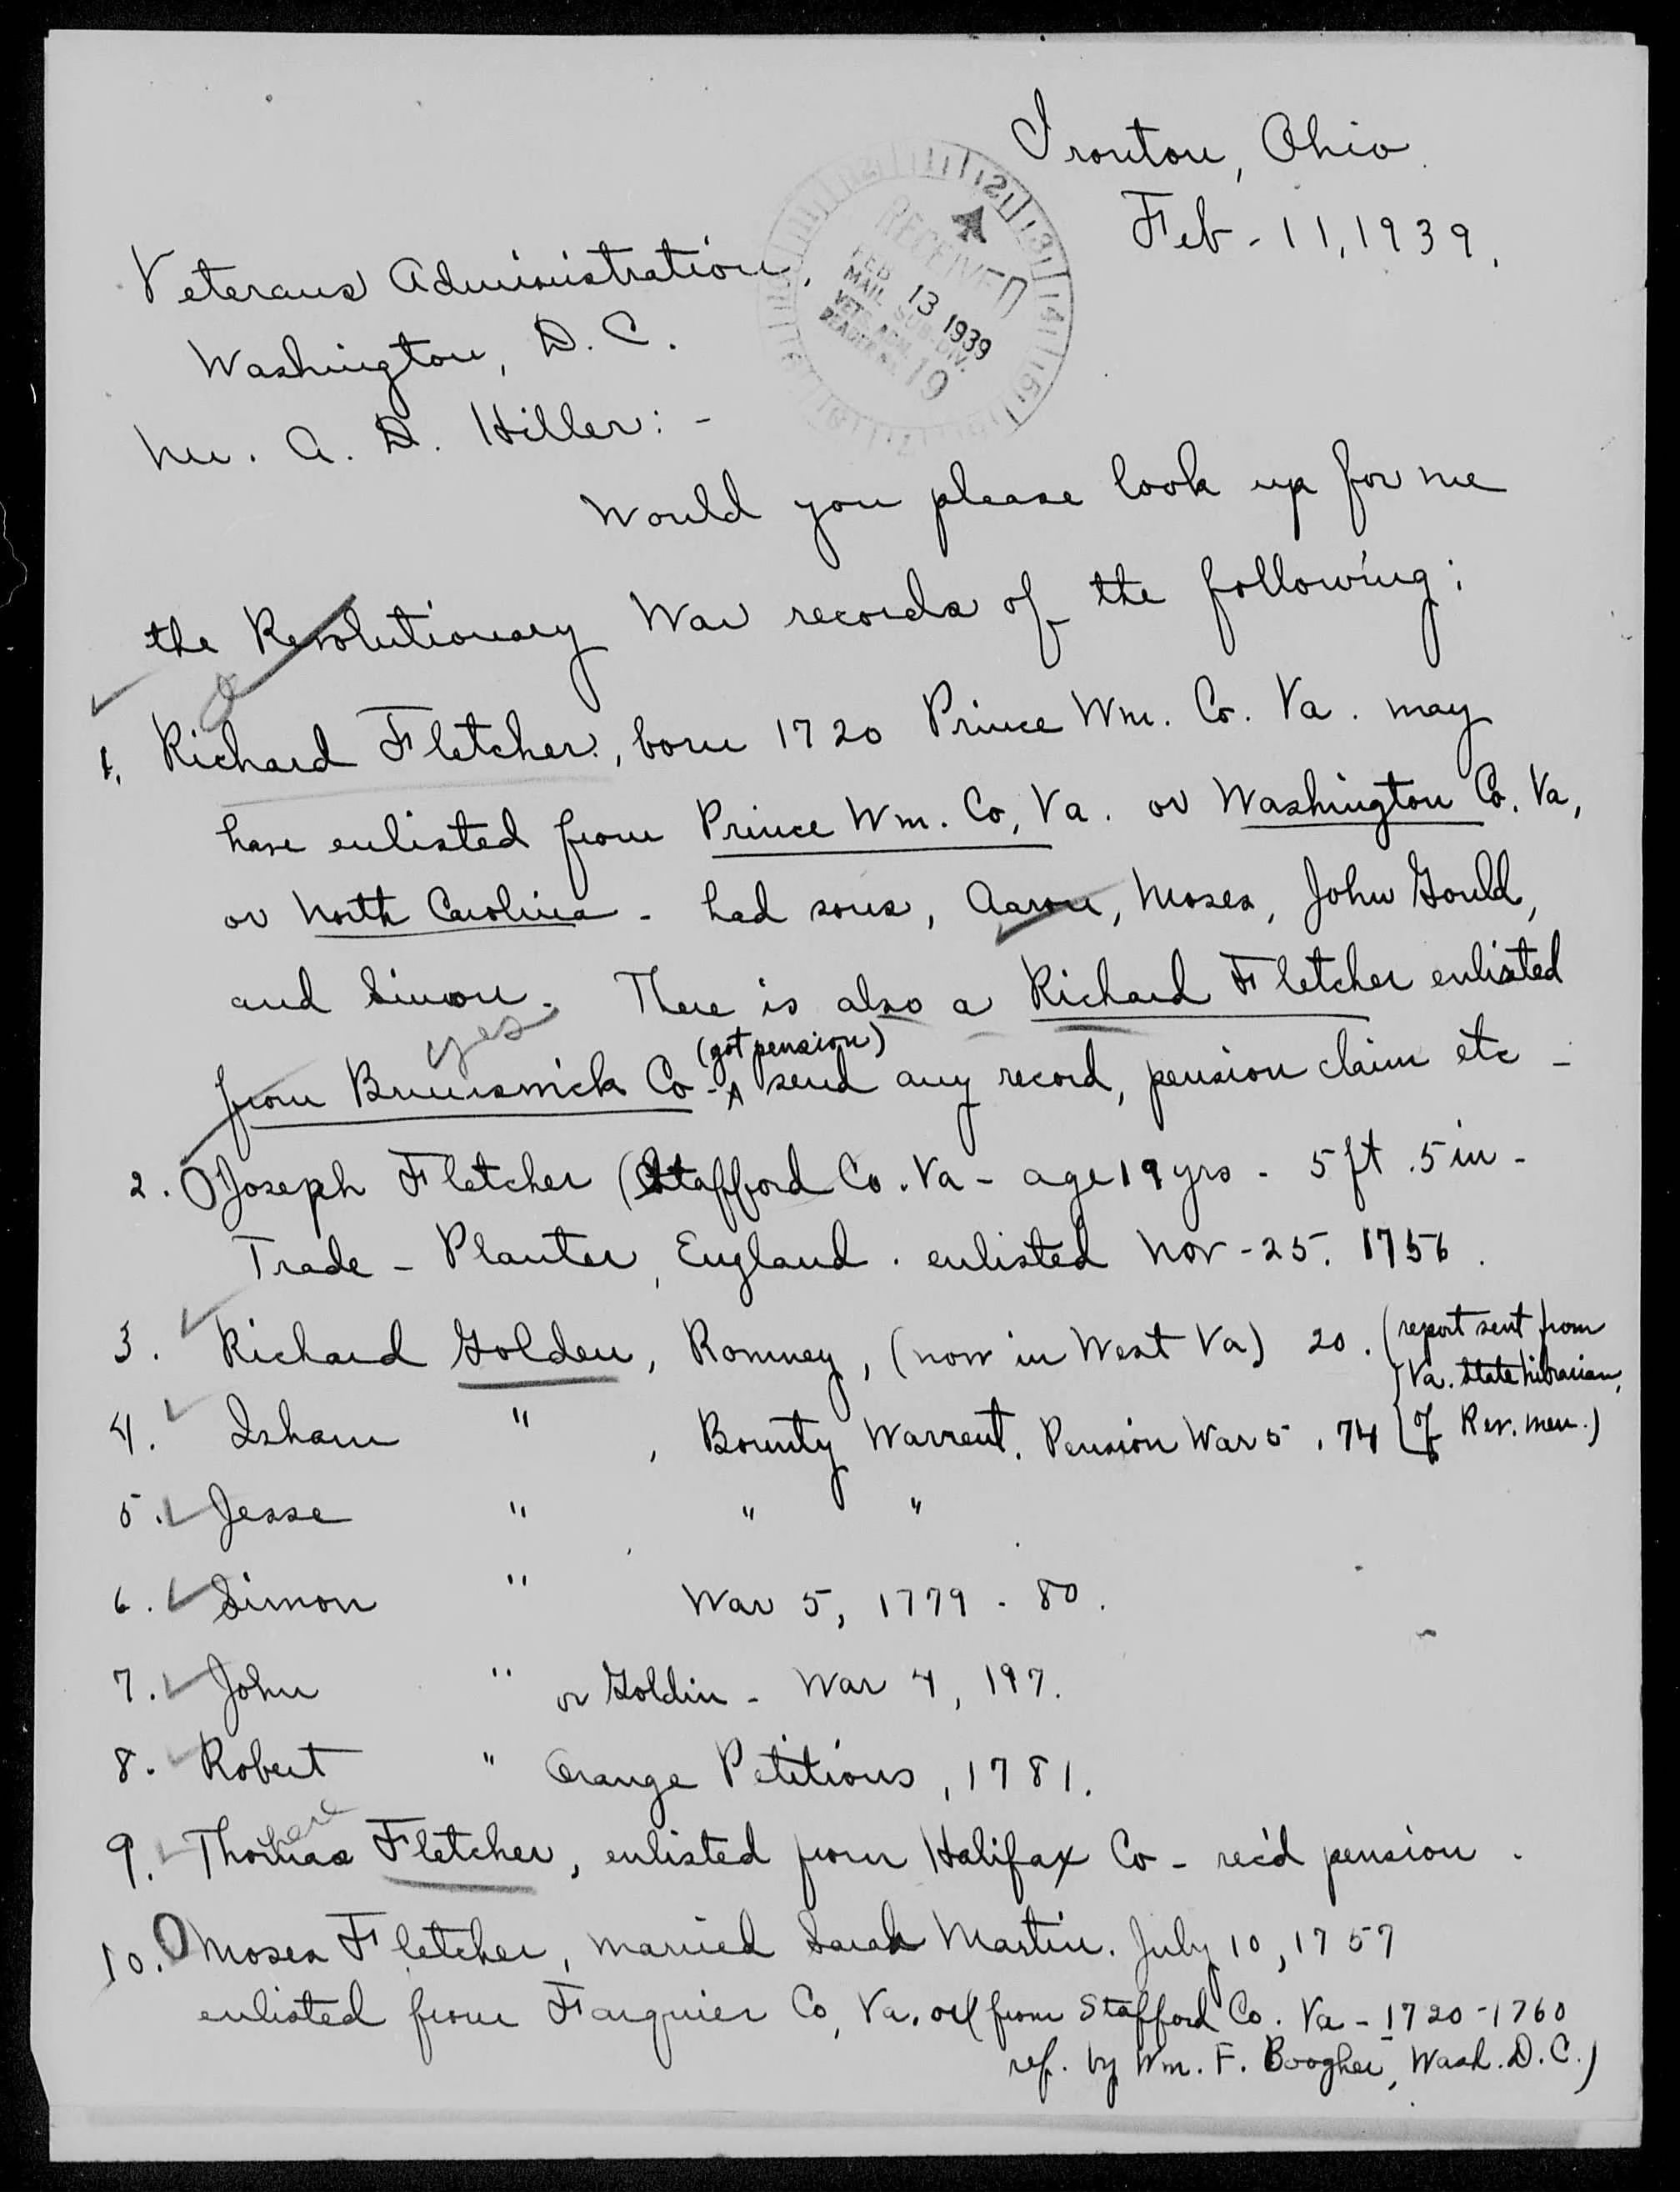 Ironton, Ohio.
Feb - 11, 1939.
RECEIVED
FEB 13 1939
MAIL SUB-DIV.
VETS. ADM.
19
Veterans Administration,
Washington, D. C.
Mr. A. D. Hiller: -
Would you please look up for me
the Revolutionary War records of the following;
1. Richard Fletcher, born 1720 Prince Wm. Co. Va. may
have enlisted from Prince Wm. Co, Va. or Washington Co. Va,
or North Carolina - had sons, Aaron, Moses, John Gould,
and Simon. There is also a Richard Fletcher enlisted
yes
(got pension)
from Brunswick Co - send any record, pension claim etc -
2. Joseph Fletcher (Stafford Co. Va - age 19 yrs - 5 ft. 5 in -
Trade - Planter, England. enlisted Nov - 25. 1756.
3. Richard Golden, Romney, (now in West Va) 20. (report sent from
Va. State Librarian,
4. Isham " , Bounty Warrent. Pension War 5, 74 of Rev. men.)
5. Jesse " " "
6. Simon " War 5, 1779 - 80.
7. John " or Goldin - War 4, 197.
8. Robert " Orange Petitions, 1781.
9. Thomas Fletcher, enlisted from Halifax Co - rec'd pension.
10. Moses Fletcher, married Sarah Martin. July 10, 1757
enlisted from Fauquier Co, Va. or (from Stafford Co. Va - 1720 - 1760
ref. by Wm. F. Boogher, Wash. D. C.)